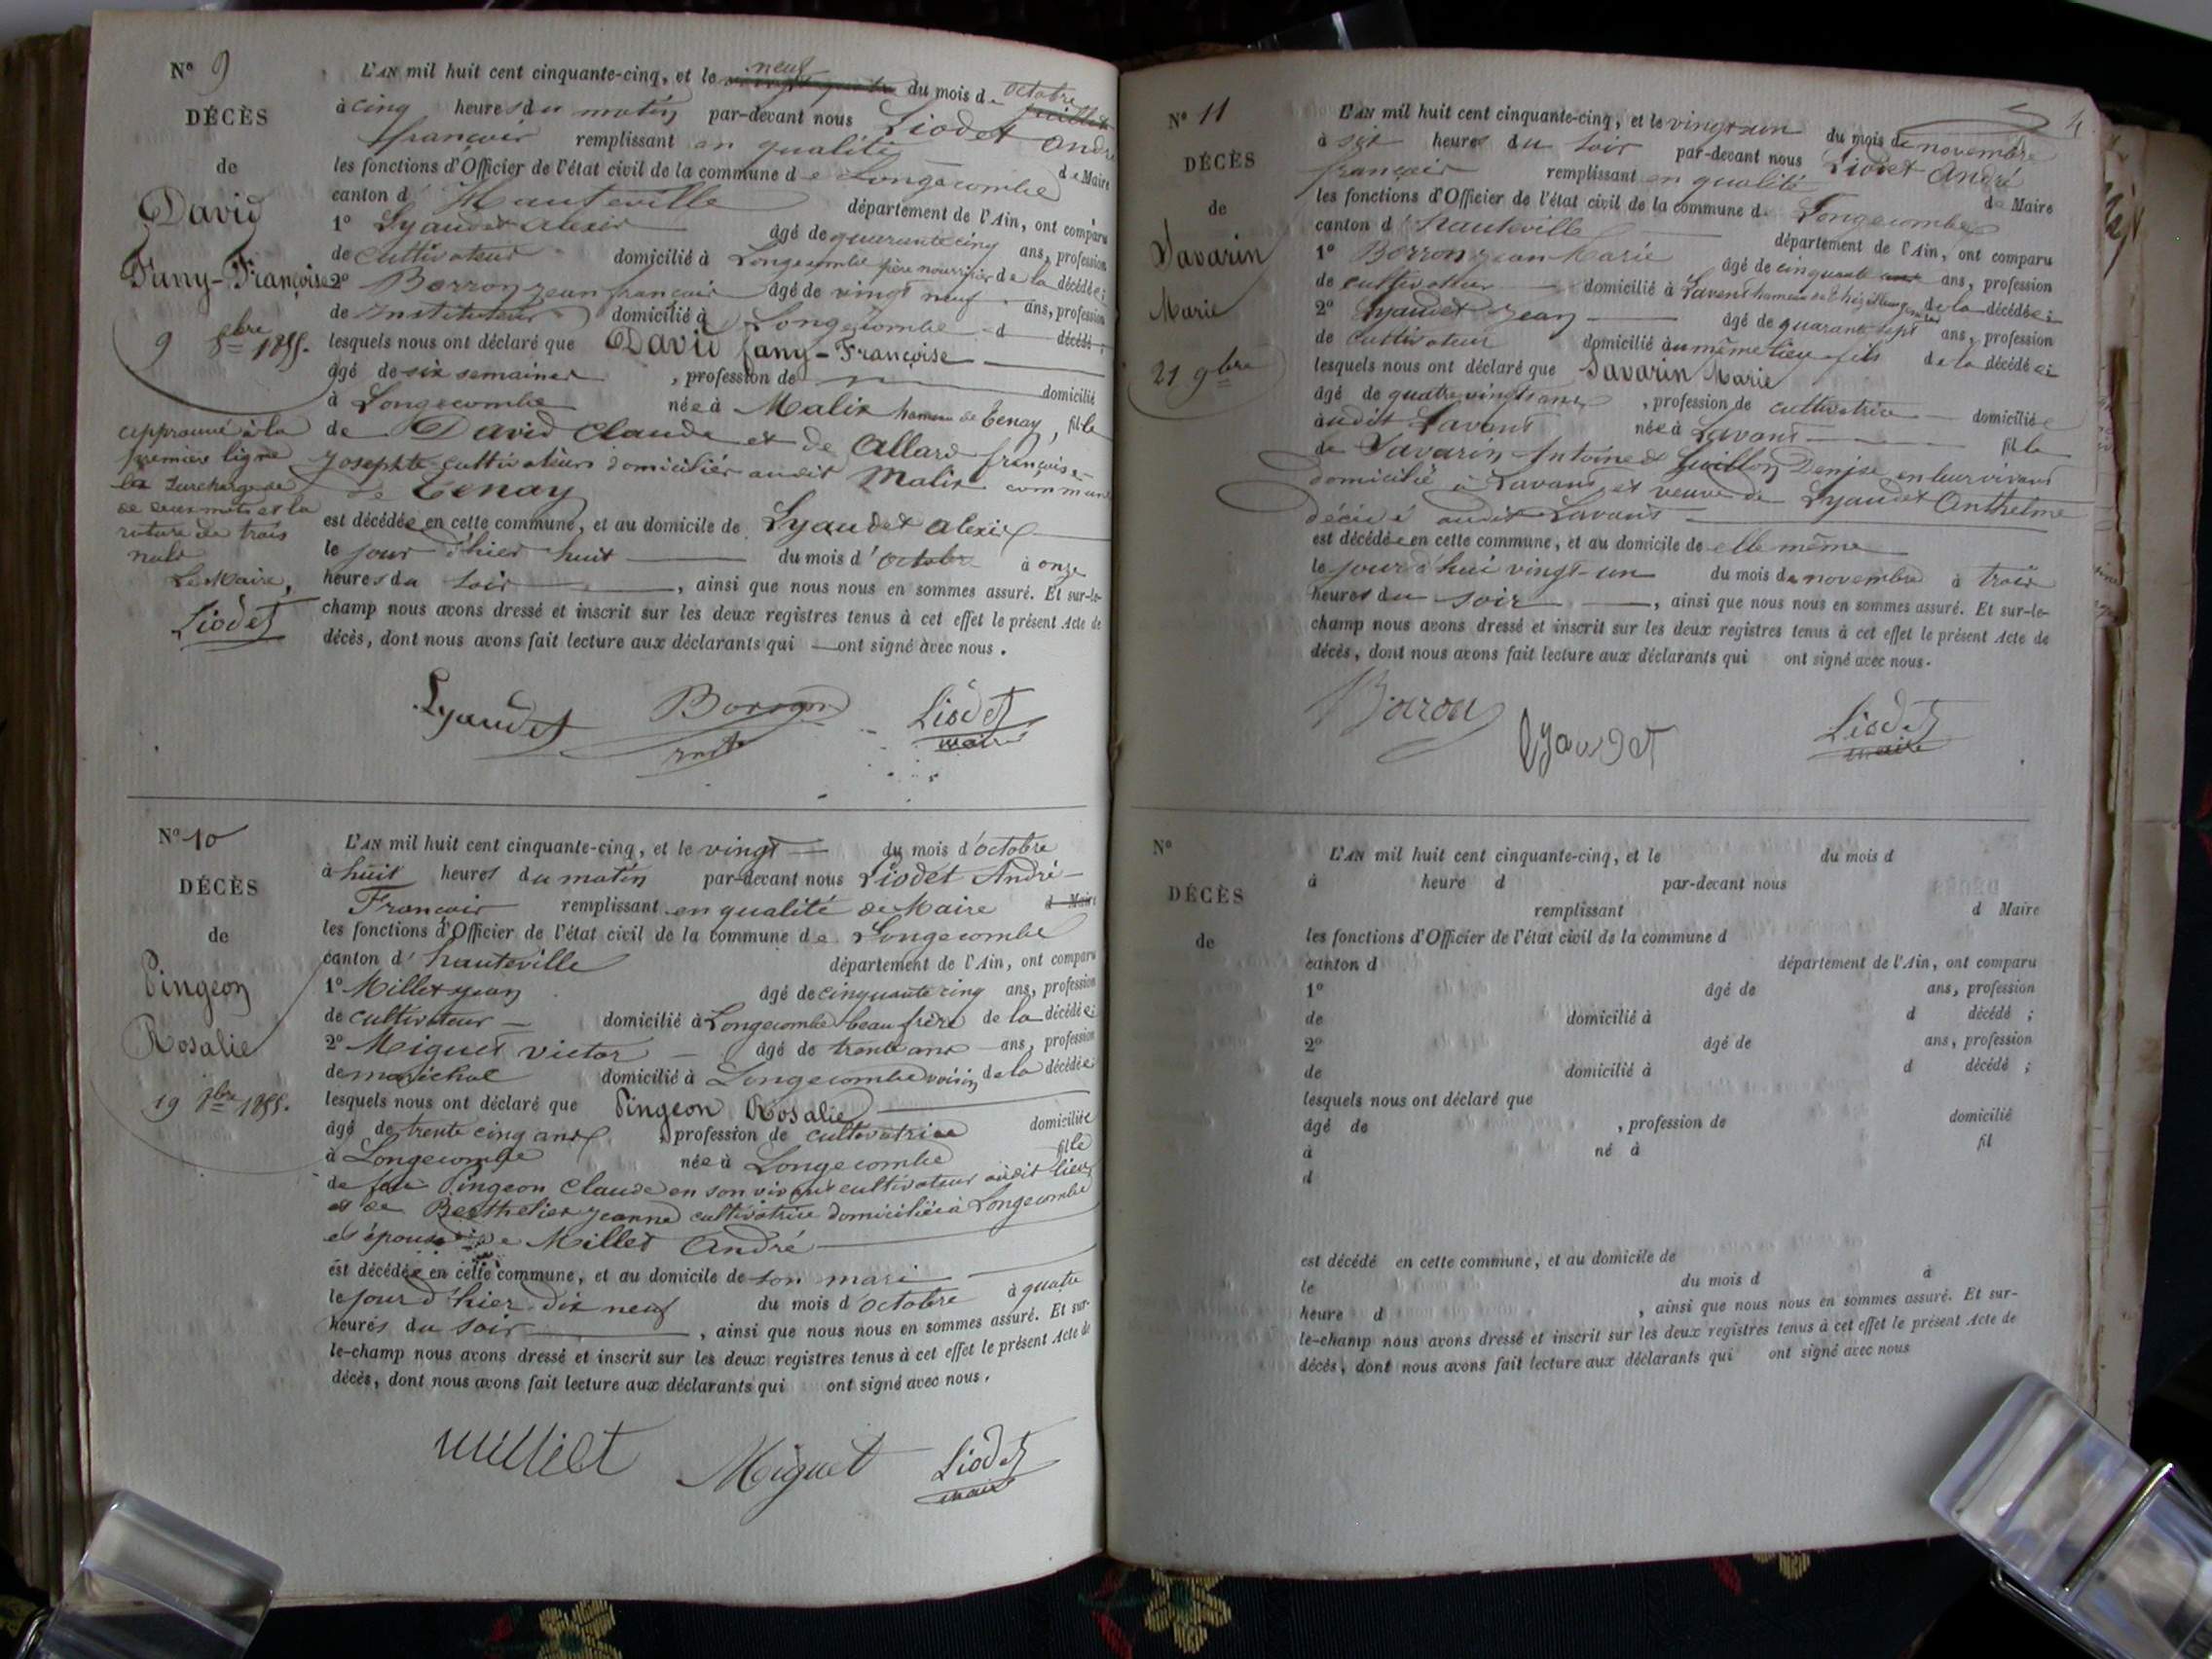 N° 9
DÉCÈS
de
David
Fany-Françoise
9 8bre 1855.
approuvé à la
première ligne
la surcharge de
de deux mots et la
rature de trois
nuls
Le Maire,
Liodet
L'AN mil huit cent cinquante-cinq, et le neuf du mois de octobre
à cinq heures du matin par-devant nous Liodet André
françois remplissant en qualité de Maire
les fonctions d'Officier de l'état civil de la commune de Longecombe
canton d'Hauteville département de l'Ain, ont comparu
1° Lyaudet alexis âgé de quarante cinq ans, profession
de cultivateur domicilié à Longecombe père nourricier de la décédée;
2° Borron jean françois âgé de vingt neuf ans, profession
de Instituteur domicilié à Longecombe d décédé;
lesquels nous ont déclaré que David fany-Françoise
âgé de six semaines, profession de domicilié
à Longecombe née à Malix hameau de tenay, fille
de David Claude et de Allard françoise-
Josephte cultivateurs domiciliés audit Malix commune
de Tenay
est décédée en cette commune, et au domicile de Lyaudet alexis
le jour d'hier huit du mois d'octobre à onze
heures du soir, ainsi que nous nous en sommes assuré. Et sur-le-
champ nous avons dressé et inscrit sur les deux registres tenus à cet effet le présent Acte de
décès, dont nous avons fait lecture aux déclarants qui ont signé avec nous.
Lyaudet Borron Liodet
maire
N° 10
DÉCÈS
de
Pingeon
Rosalie
19 8bre 1855.
L'AN mil huit cent cinquante-cinq, et le vingt du mois d'octobre
à huit heures du matin par-devant nous Liodet André
François remplissant en qualité de Maire d Maire
les fonctions d'Officier de l'état civil de la commune de Longecombe
canton d'hauteville département de l'Ain, ont comparu
1° Millet jean âgé de cinquante cinq ans, profession
de cultivateur domicilié à Longecombe beau frère de la décédée;
2° Miguet victor âgé de trente ans ans, profession
de maréchal domicilié à Longecombe voisin de la décédée;
lesquels nous ont déclaré que Pingeon Rosalie
âgé de trente cinq ans, profession de cultivatrice domiciliée
à Longecombe née à Longecombe fille
de feu Pingeon Claude en son vivant cultivateur audit lieu
et de Berthelier jeanne cultivatrice domiciliée à Longecombe
et épouse de Millet André
est décédée en cette commune, et au domicile de son mari
le jour d'hier dix neuf du mois d'octobre à quatre
heures du soir, ainsi que nous nous en sommes assuré. Et sur-
le-champ nous avons dressé et inscrit sur les deux registres tenus à cet effet le présent Acte de
décès, dont nous avons fait lecture aux déclarants qui ont signé avec nous.
Milliet Miguet Liodet
maire
4
N° 11
DÉCÈS
de
Savarin
Marie
21 9bre
L'AN mil huit cent cinquante-cinq, et le vingt un du mois de novembre
à six heures du soir par-devant nous Liodet André
françois remplissant en qualité de Maire
les fonctions d'Officier de l'état civil de la commune d Longecombe
canton d'hauteville département de l'Ain, ont comparu
1° Borron jean Marie âgé de cinquante ans ans, profession
de cultivateur domicilié à Lavant hameau de de la décédée;
2° Lyaudet jean âgé de quarante sept ans, profession
de cultivateur domicilié au même lieu fils de la décédée;
lesquels nous ont déclaré que Savarin Marie
âgé de quatre vingts ans, profession de cultivatrice domiciliée
audit Lavant née à Lavant fille
de Savarin Antoine et Guillon Denise en leur vivant
domicilié à Lavant et veuve de Lyaudet Anthelme
décédé audit Lavant
est décédée en cette commune, et au domicile de elle même
le jour d'hui vingt-un du mois de novembre à trois
heures du soir, ainsi que nous nous en sommes assuré. Et sur-le-
champ nous avons dressé et inscrit sur les deux registres tenus à cet effet le présent Acte de
décès, dont nous avons fait lecture aux déclarants qui ont signé avec nous.
Borron Lyaudet Liodet
maire
N°
DÉCÈS
de
L'AN mil huit cent cinquante-cinq, et le du mois d
à heure d par-devant nous
remplissant d Maire
les fonctions d'Officier de l'état civil de la commune d
canton d département de l'Ain, ont comparu
1° âgé de ans, profession
de domicilié à d décédé ;
2° âgé de ans, profession
de domicilié à d décédé ;
lesquels nous ont déclaré que
âgé de , profession de domicilié
à né à fil
d
est décédé en cette commune, et au domicile de
le du mois d à
heure d , ainsi que nous nous en sommes assuré. Et sur-
le-champ nous avons dressé et inscrit sur les deux registres tenus à cet effet le présent Acte de
décès, dont nous avons fait lecture aux déclarants qui ont signé avec nous